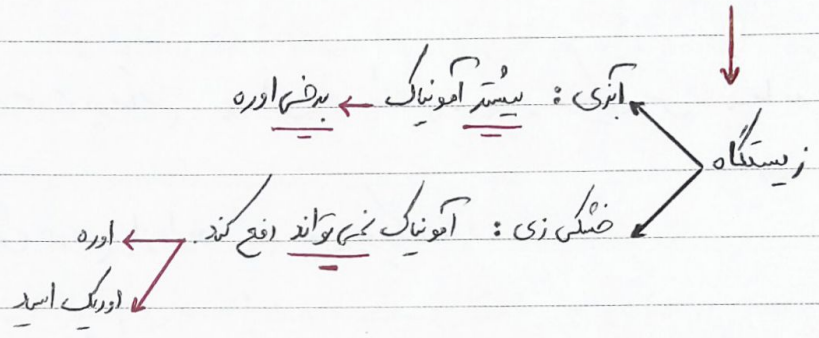 آبزی : بیشتر آمونیاک ← برخی اوره
زیستگاه
خشکی زی : آمونیاک نمی تواند دفع کند. ← اوره
اوریک اسید